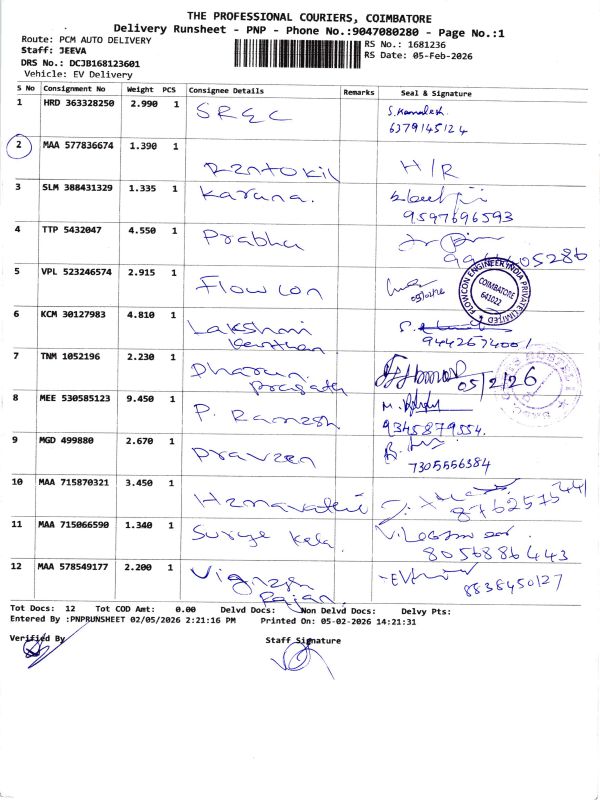 THE PROFESSIONAL COURIERS, COIMBATORE
Delivery Runsheet - PNP - Phone No.:9047080280 - Page No.:1
Route: PCM AUTO DELIVERY
RS No.: 1681236
Staff: JEEVA
RS Date: 05-Feb-2026
DRS No.: DCJB168123601
Vehicle: EV Delivery
S No Consignment No Weight PCS Consignee Details Remarks Seal & Signature
1 HRD 363328250 2.990 1 SREC S. Kamalesh
6379145124
2 MAA 577836674 1.390 1 Rentokil H/R
3 SLM 388431329 1.335 1 Karuna.
9597696593
4 TTP 5432047 4.550 1 Prabhu
5 VPL 523246574 2.915 1 Flowcon
FLOWCON ENGINEER INDIA PRIVATE LIMITED
COIMBATORE
641022
6 KCM 30127983 4.810 1 Lakshmi
Kanthan
9442674001
7 TNM 1052196 2.230 1 Dharun
Prasath
05/2/26
8 MEE 530585123 9.450 1 P. Ramesh
9345879554.
9 MGD 499880 2.670 1 Praveen
7305556384
10 MAA 715870321 3.450 1 Hemavathi
11 MAA 715066590 1.340 1 Surya Kala.
8056886443
12 MAA 578549177 2.200 1 Vignesh
Rajan.
8838450127
Tot Docs: 12 Tot COD Amt: 0.00 Delvd Docs: Non Delvd Docs: Delvy Pts:
Entered By :PNPRUNSHEET 02/05/2026 2:21:16 PM Printed On: 05-02-2026 14:21:31
Verified By Staff Signature